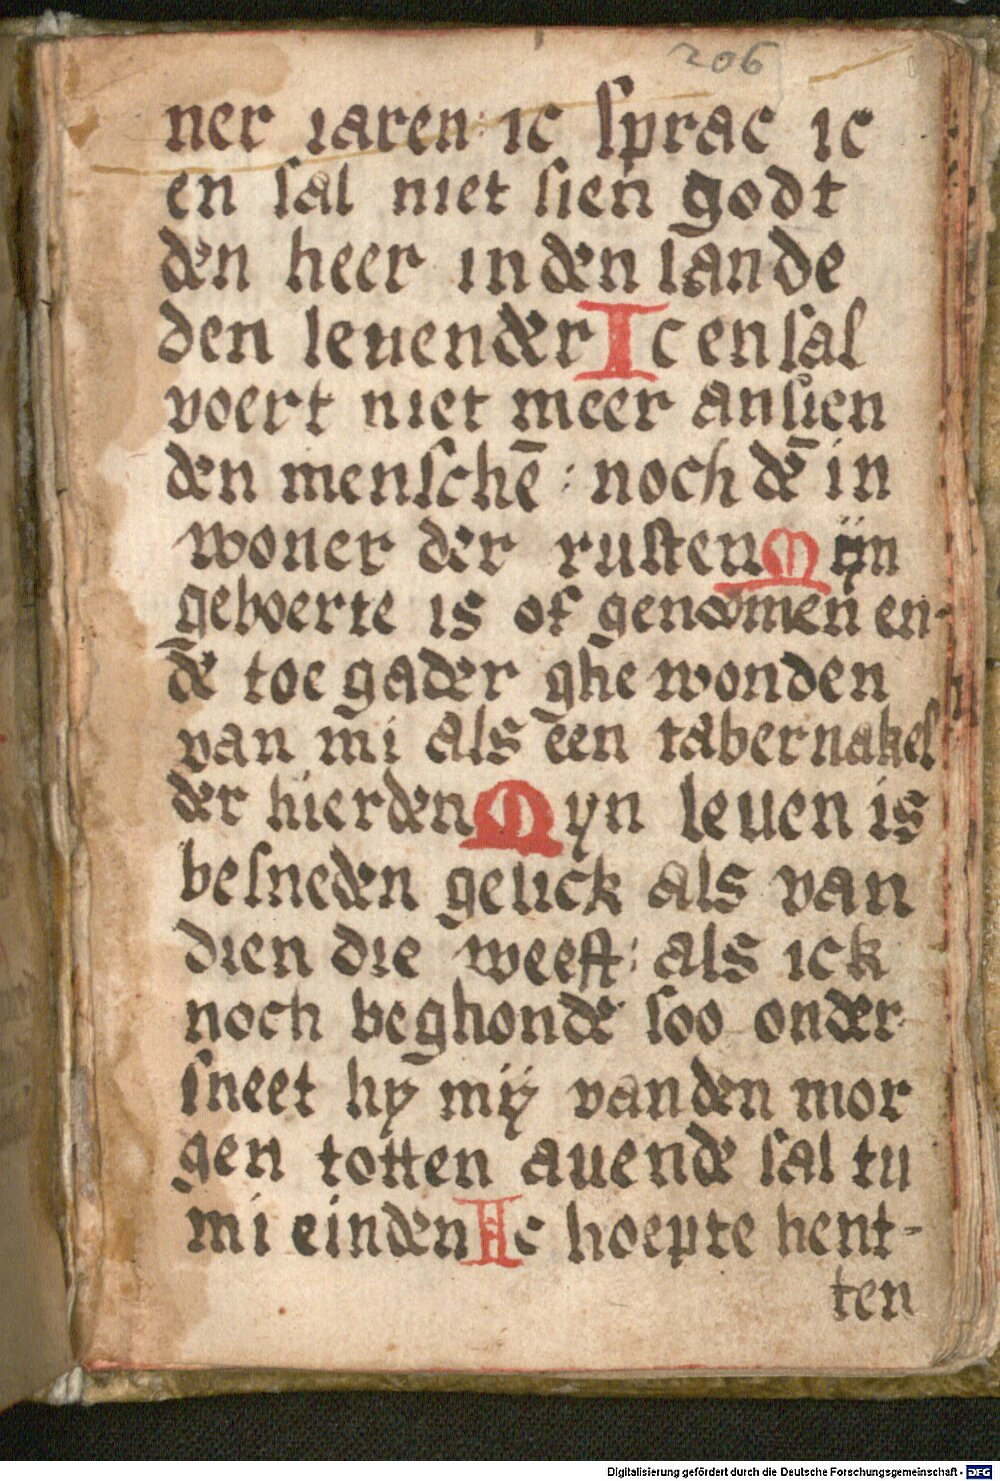 206
ner iaren: ic sprac ic
en sal niet sien godt
den heer in den lande
den leuender Ic en sal
voert niet meer ansien
den menschē: noch dē in
woner der rusten Mijn
geboerte is of genomen en-
de toe gader ghe wonden
van mi als een tabernakel
der hierden Myn leuen is
besneden gelick als van
dien die weeft: als ick
noch beghonde soo onder
sneet hy mij vanden mor
gen totten auende sal tu
mi einden Ic hoepte hent-
ten
Digitalisierung gefördert durch die Deutsche Forschungsgemeinschaft - DFG